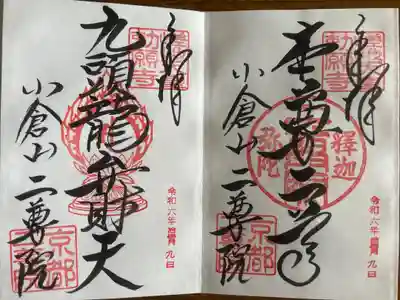 奉拝
勅願寺
本尊二尊
釋迦
弥陀
小倉山二尊院
京都
令和六年
九日
奉拝
勅願寺
九頭龍弁財天
小倉山二尊院
京都
令和六年
九日